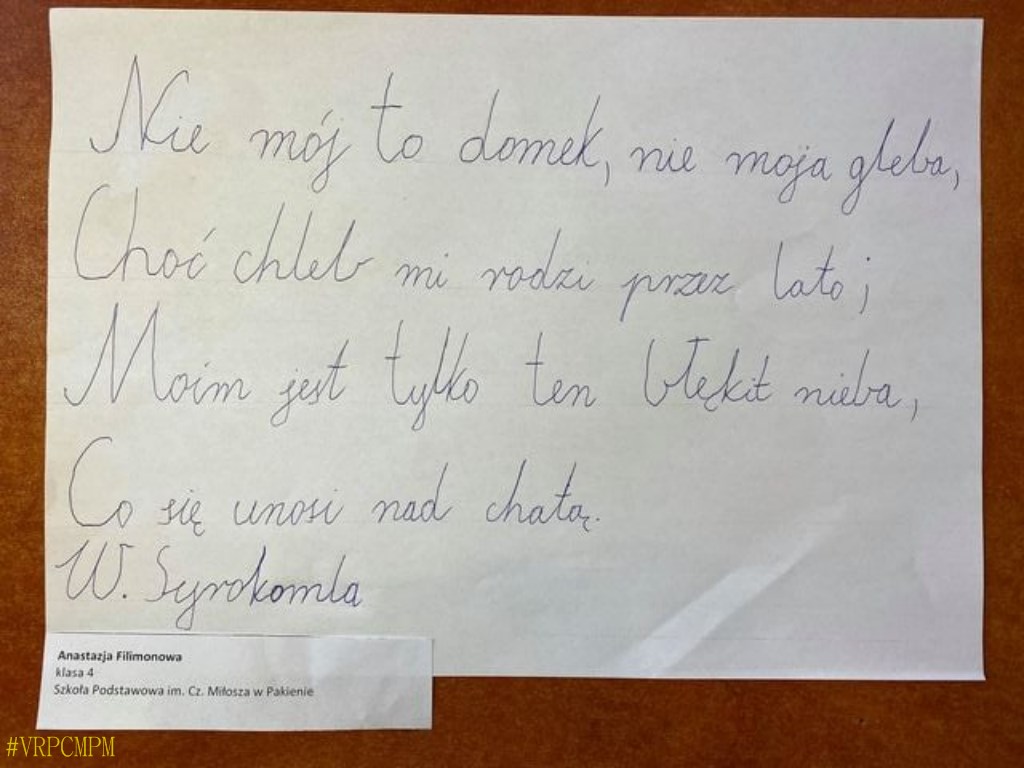 Nie mój to domek, nie moja gleba,
Choć chleb mi rodzi przez lato;
Moim jest tylko ten błękit nieba,
Co się unosi nad chatą.
W. Syrokomla
Anastazja Filimonowa
klasa 4
Szkoła Podstawowa im. Cz. Miłosza w Pakienie
#VRPCMPM